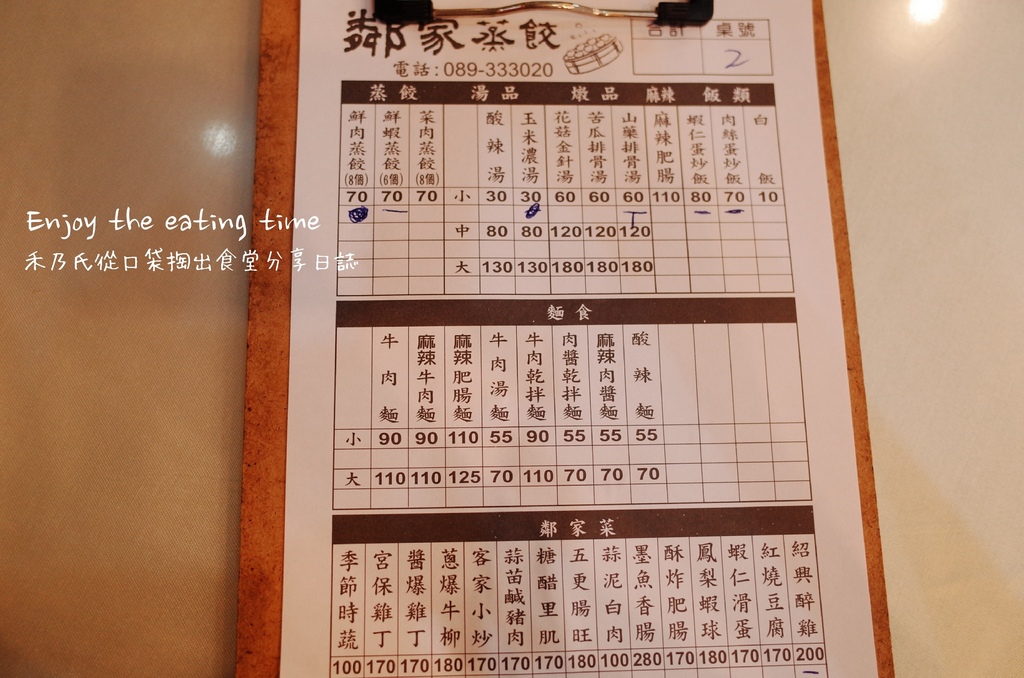 鄰家蒸餃
合計 桌號
2
電話:089-333020
蒸餃 湯品 燉品 麻辣 飯類
鮮肉蒸餃(8個) 鮮蝦蒸餃(6個) 菜肉蒸餃(8個) 酸辣湯 玉米濃湯 花菇金針湯 苦瓜排骨湯 山藥排骨湯 麻辣肥腸 蝦仁蛋炒飯 肉絲蛋炒飯 白飯
70 70 70 小 30 30 60 60 60 110 80 70 10
中 80 80 120 120 120
大 130 130 180 180 180
Enjoy the eating time
禾乃氏從口袋掏出食堂分享日誌
麵食
牛肉麵 麻辣牛肉麵 麻辣肥腸麵 牛肉湯麵 牛肉乾拌麵 肉醬乾拌麵 麻辣肉醬麵 酸辣麵
小 90 90 110 55 90 55 55 55
大 110 110 125 70 110 70 70 70
鄰家菜
季節時蔬 宮保雞丁 醬爆雞丁 蔥爆牛柳 客家小炒 蒜苗鹹豬肉 糖醋里肌 五更腸旺 蒜泥白肉 墨魚香腸 酥炸肥腸 鳳梨蝦球 蝦仁滑蛋 紅燒豆腐 紹興醉雞
100 170 170 180 170 170 170 180 100 280 170 180 170 170 200